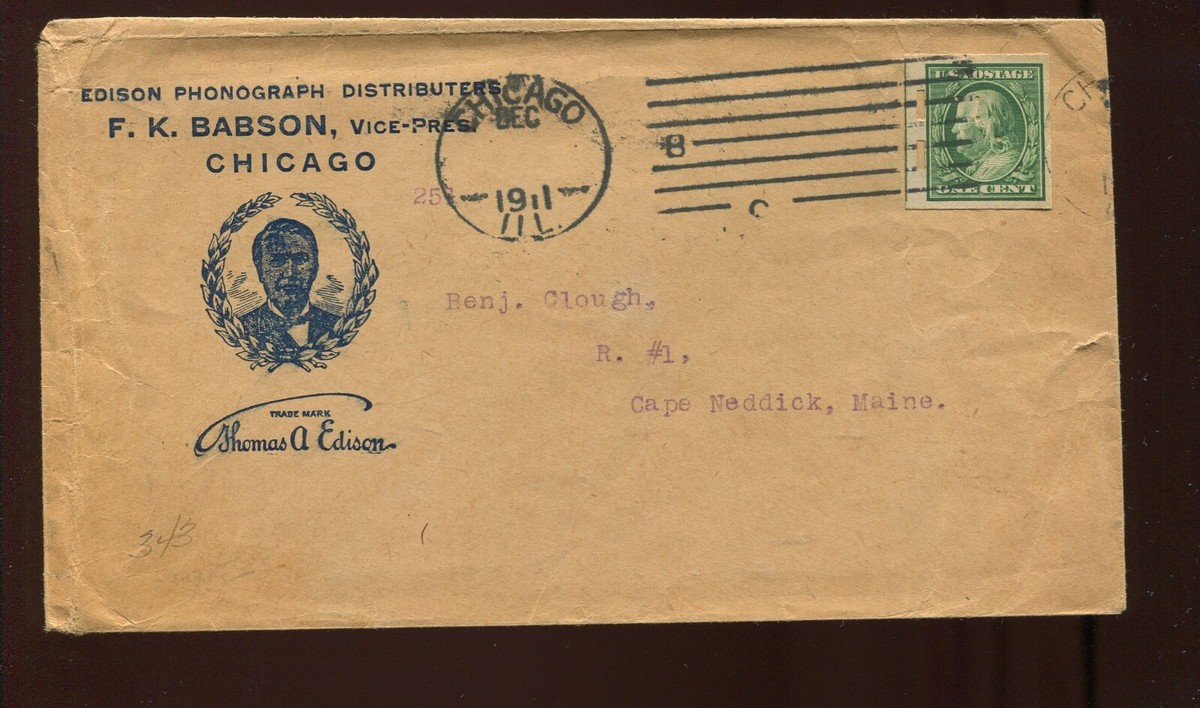 EDISON PHONOGRAPH DISTRIBUTERS
F. K. BABSON, VICE-PRES.
CHICAGO
CHICAGO
DEC
1911
ILL.
B
C
U.S. POSTAGE
ONE CENT
25
Benj. Clough,
R. #1,
Cape Neddick, Maine.
TRADE MARK
Thomas A Edison
343